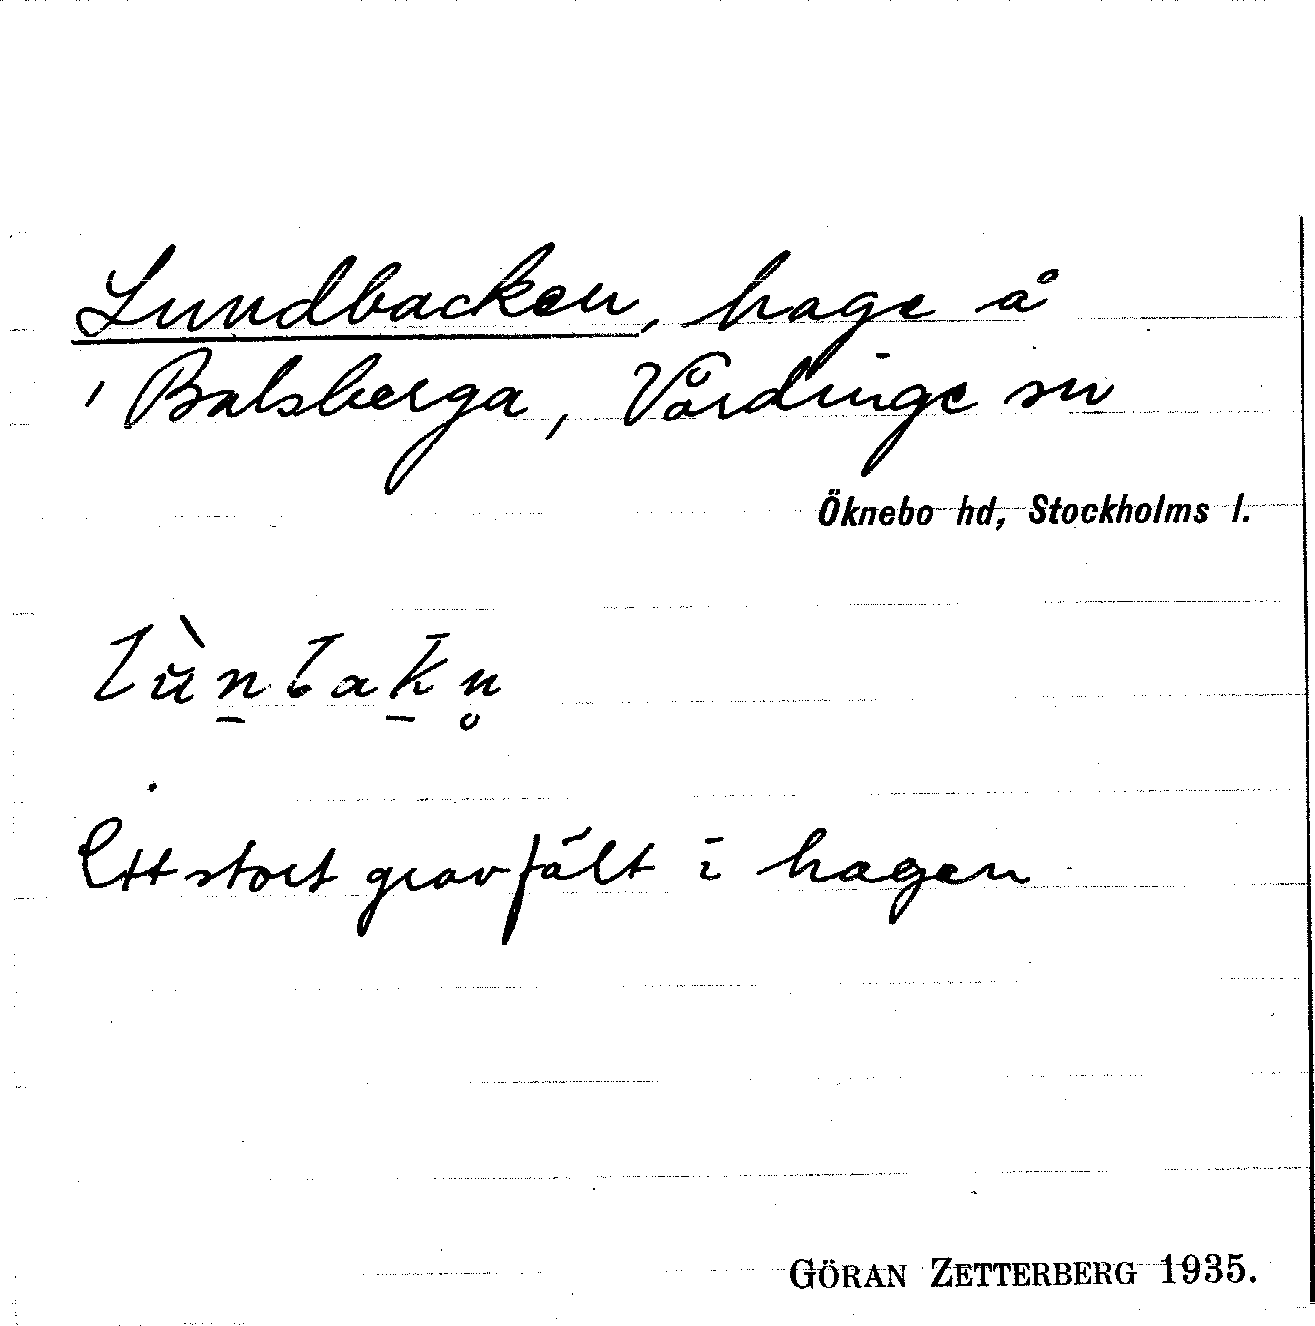 Lundbacken, hage å
' Balsberga, Vårdinge sn
Öknebo hd, Stockholms l.
lùn̠bak̠n̥
Ett stort gravfält i hagen
GÖRAN ZETTERBERG 1935.